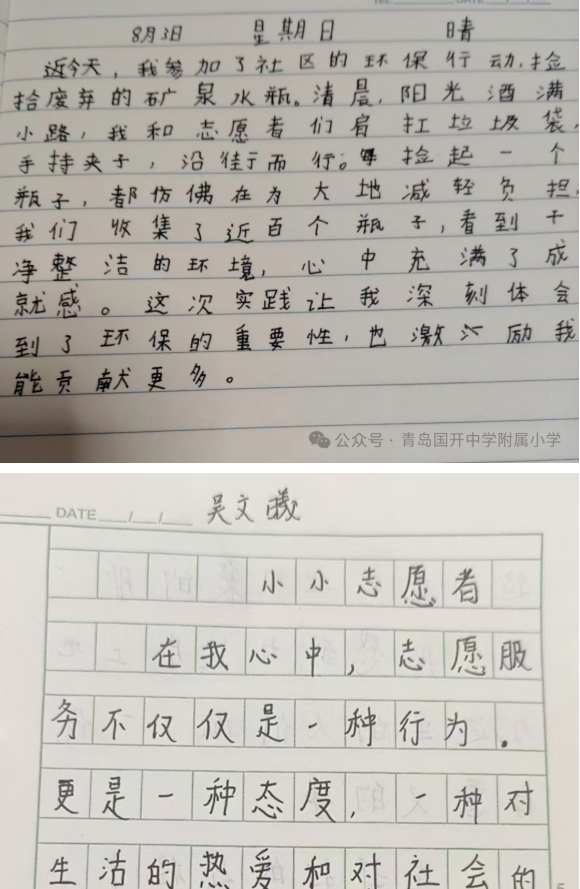 DATE
8月3日 星期日 晴
近今天，我参加了社区的环保行动，捡
拾废弃的矿泉水瓶。清晨，阳光洒满
小路，我和志愿者们肩扛垃圾袋，
手持夹子，沿街而行。每捡起一个
瓶子，都仿佛在为大地减轻负担。
我们收集了近百个瓶子，看到干
净整洁的环境，心中充满了成
就感。这次实践让我深刻体会
到了环保的重要性，也激励我
能贡献更多。
公众号·青岛国开中学附属小学
DATE 吴文曦
小小志愿者
在我心中，志愿服
务不仅仅是一种行为．
更是一种态度，一种对
生活的热爱和对社会的